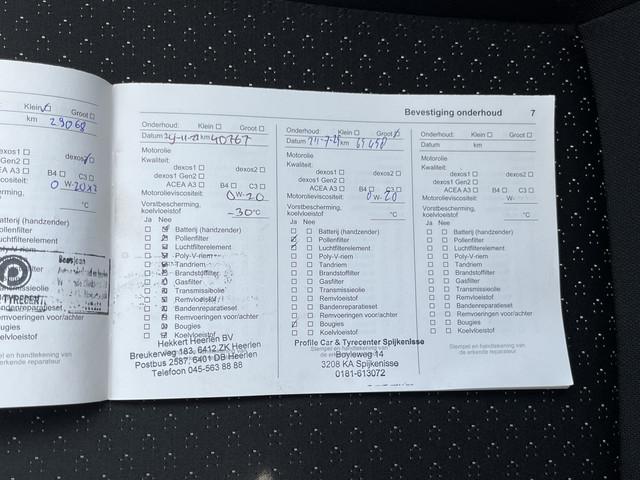 Klein Groot
km 29068
dexos1
dexos
Gen2
A A3 B4 C3
0 W-20
°C
atterij (handzender)
ollenfilter
uchtfilterelement
TYRECENT
ugies
Bevestiging onderhoud 7
Onderhoud: Klein Groot
Datum km 40767
Motorolie
Kwaliteit:
dexos1 dexos2
dexos1 Gen2
ACEA A3 B4 C3
Motorolieviscositeit: 0W-20
Vorstbescherming,
koelvloeistof -30°C
Ja Nee
Batterij (handzender)
Pollenfilter
Luchtfilterelement
Poly-V-riem
Tandriem
Brandstoffilter
Gasfilter
Transmissieolie
Remvloeistof
Bandenreparatieset
Remvoeringen voor/achter
Bougies
Koelvloeistof
Hekkert Heerlen BV
Breukerweg 183, 6412 ZK Heerlen
Postbus 2587, 6401 DB Heerlen
Telefoon 045-563 88 88
Onderhoud: Klein Groot
Datum km
Motorolie
Kwaliteit:
dexos1 dexos2
dexos1 Gen2
ACEA A3 B4 C3
Motorolieviscositeit: 0 W-20
Vorstbescherming,
koelvloeistof °C
Ja Nee
Batterij (handzender)
Pollenfilter
Luchtfilterelement
Poly-V-riem
Tandriem
Brandstoffilter
Gasfilter
Transmissieolie
Remvloeistof
Bandenreparatieset
Remvoeringen voor/achter
Bougies
Koelvloeistof
Profile Car & Tyrecenter Spijkenisse
Stempel en handtekening van
Boyleweg 14
3208 KA Spijkenisse
0181-613072
Onderhoud: Klein Groot
Datum km
Motorolie
Kwaliteit:
dexos1 dexos2
dexos1 Gen2
ACEA A3 B4 C3
Motorolieviscositeit: W-
Vorstbescherming,
koelvloeistof °C
Ja Nee
Batterij (handzender)
Pollenfilter
Luchtfilterelement
Poly-V-riem
Tandriem
Brandstoffilter
Gasfilter
Transmissieolie
Remvloeistof
Bandenreparatieset
Remvoeringen voor/achter
Bougies
Koelvloeistof
Stempel en handtekening van
de erkende reparateur